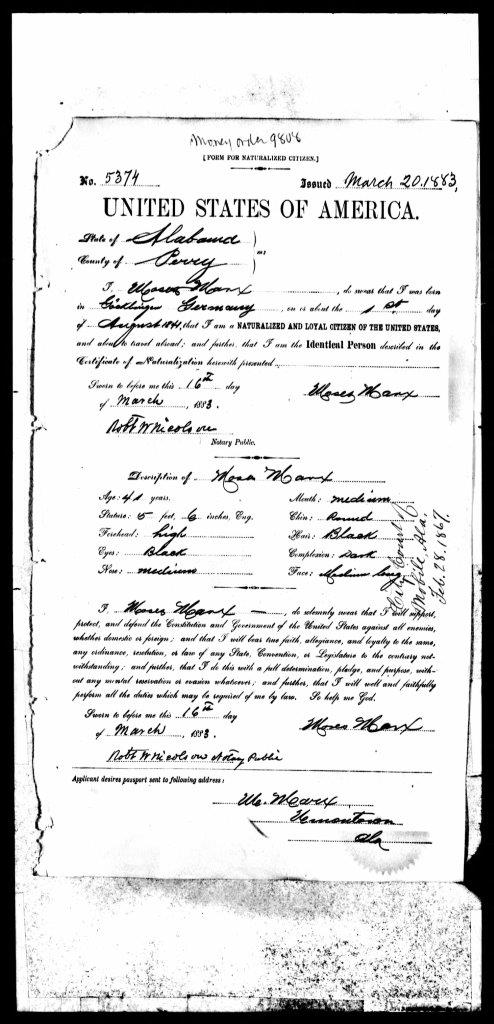 Money order 9808
[FORM FOR NATURALIZED CITIZEN.]
No. 5374 Issued March 20. 1883,
UNITED STATES OF AMERICA.
State of Alabama )
County of Perry ) ss:
I, Moses Marx, do swear that I was born
in Germany, on or about the 1st day
of August 1841, that I am a NATURALIZED AND LOYAL CITIZEN OF THE UNITED STATES,
and about to travel abroad; and further, that I am the Identical Person described in the
Certificate of Naturalization herewith presented
Sworn to before me this 16th day
of March, 1883.
Moses Marx
Robt W Nicolson
Notary Public.
Description of Moses Marx
Age: 41 years. Mouth: medium
Stature: 5 feet, 6 inches, Eng. Chin: Round
Forehead: high Hair: Black
Eyes: Black Complexion: Dark
Nose: medium Face: Medium long
City Court of
Mobile, Ala.
Feb. 28. 1867.
I, Moses Marx, do solemnly swear that I will support,
protect, and defend the Constitution and Government of the United States against all enemies,
whether domestic or foreign; and that I will bear true faith, allegiance, and loyalty to the same,
any ordinance, resolution, or law of any State, Convention, or Legislature to the contrary not-
withstanding; and further, that I do this with a full determination, pledge, and purpose, with-
out any mental reservation or evasion whatsoever; and further, that I will well and faithfully
perform all the duties which may be required of me by law. So help me God.
Sworn to before me this 16th day
of March, 1883.
Moses Marx
Robt W Nicolson Notary Public
Applicant desires passport sent to following address:
M. Marx
Uniontown
Ala